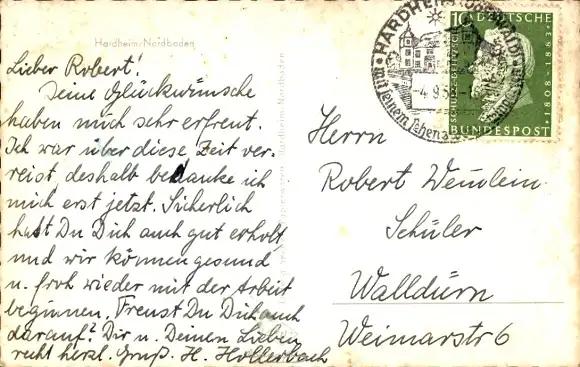 Hardheim/Nordbaden
Lieber Robert!
Deine Glückwünsche
haben mich sehr erfreut.
Ich war über diese Zeit ver-
reist, deshalb bedanke ich
mich erst jetzt. Sicherlich
hast Du Dich auch gut erholt
und wir können gesund
u. froh wieder mit der Arbeit
beginnen. Freust Du Dich auch
darauf? Dir u. Deinen Lieben
recht herzl. Gruß. H. Hollerbach
HARDHEIM
-4.9.58
mit seinem
10 DEUTSCHE
SCHULZE-DELITZSCH
1808-1883
BUNDESPOST
Herrn
Robert
Schüler
Walldürn
Weimarstr 6